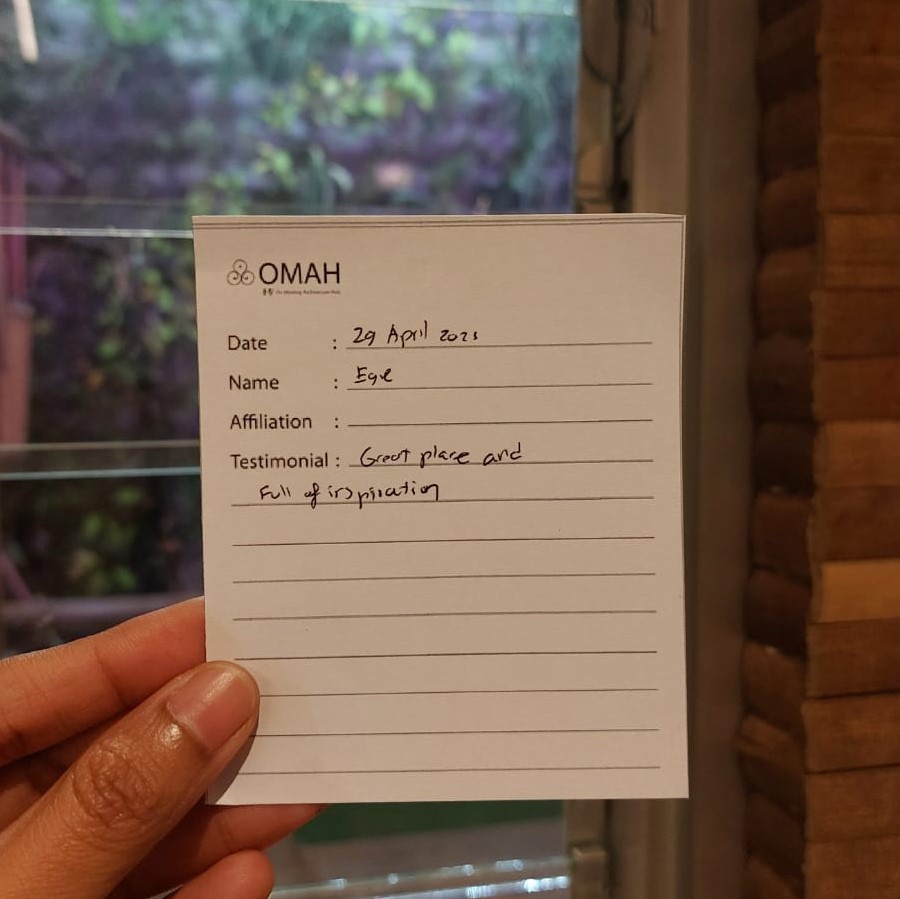 OMAH
Date : 29 April 2023
Name : Egie
Affiliation :
Testimonial : Great place and
Full of inspiration